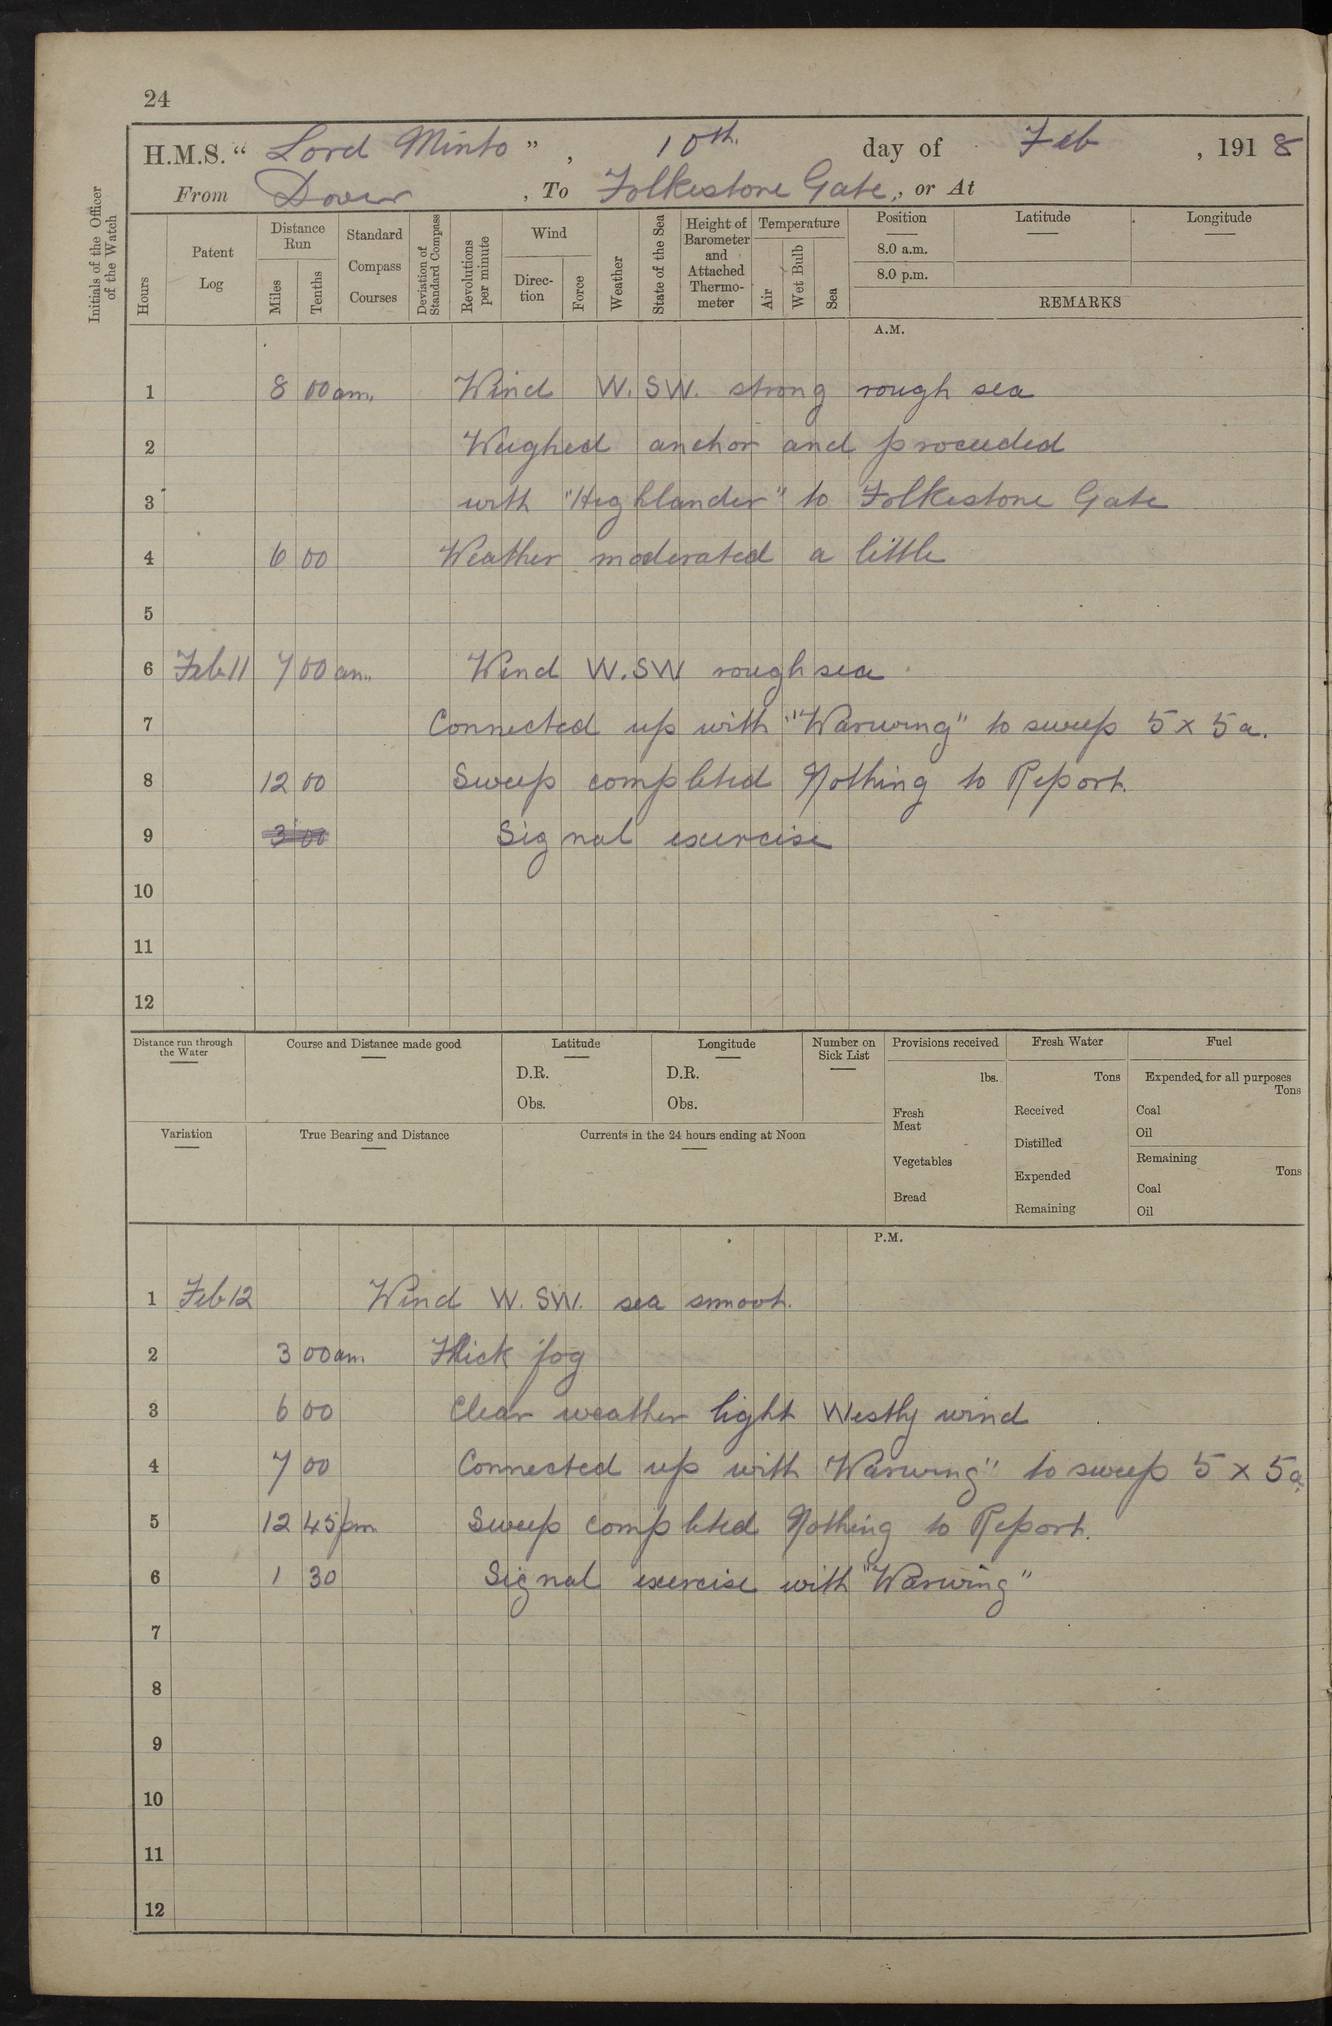 24
H.M.S. “ Lord Minto ” , 10th. day of Feb , 1918
From Dover , To Folkestone Gate , or At
Initials of the Officer of the Watch
Hours
Patent Log
Distance Run
Miles
Tenths
Standard Compass Courses
Deviation of Standard Compass
Revolutions per minute
Wind
Direc-tion
Force
Weather
State of the Sea
Height of Barometer and Attached Thermo-meter
Temperature
Air
Wet Bulb
Sea
Position
8.0 a.m.
8.0 p.m.
Latitude
Longitude
REMARKS
A.M.
1 8 00 am. Wind W. SW. strong rough sea
2 Weighed anchor and proceeded
3 with "Highlander" to Folkestone Gate
4 6 00 Weather moderated a little
5
6 Feb 11 7 00 am. Wind W.SW rough sea
7 Connected up with "Warwing" to sweep 5 x 5a.
8 12 00 Sweep completed Nothing to Report.
9 3 00 Signal exercise
10
11
12
Distance run through the Water
Course and Distance made good
Latitude
D.R.
Obs.
Longitude
D.R.
Obs.
Number on Sick List
Provisions received
lbs.
Fresh Meat
Vegetables
Bread
Fresh Water
Tons
Received
Distilled
Expended
Remaining
Fuel
Expended for all purposes
Tons
Coal
Oil
Remaining
Tons
Coal
Oil
Variation
True Bearing and Distance
Currents in the 24 hours ending at Noon
P.M.
1 Feb 12 Wind W. SW. sea smooth.
2 3 00 am Thick fog
3 6 00 Clear weather light Westly wind
4 7 00 Connected up with "Warwing" to sweep 5 x 5a.
5 12 45 pm Sweep completed Nothing to Report.
6 1 30 Signal exercise with "Warwing"
7
8
9
10
11
12